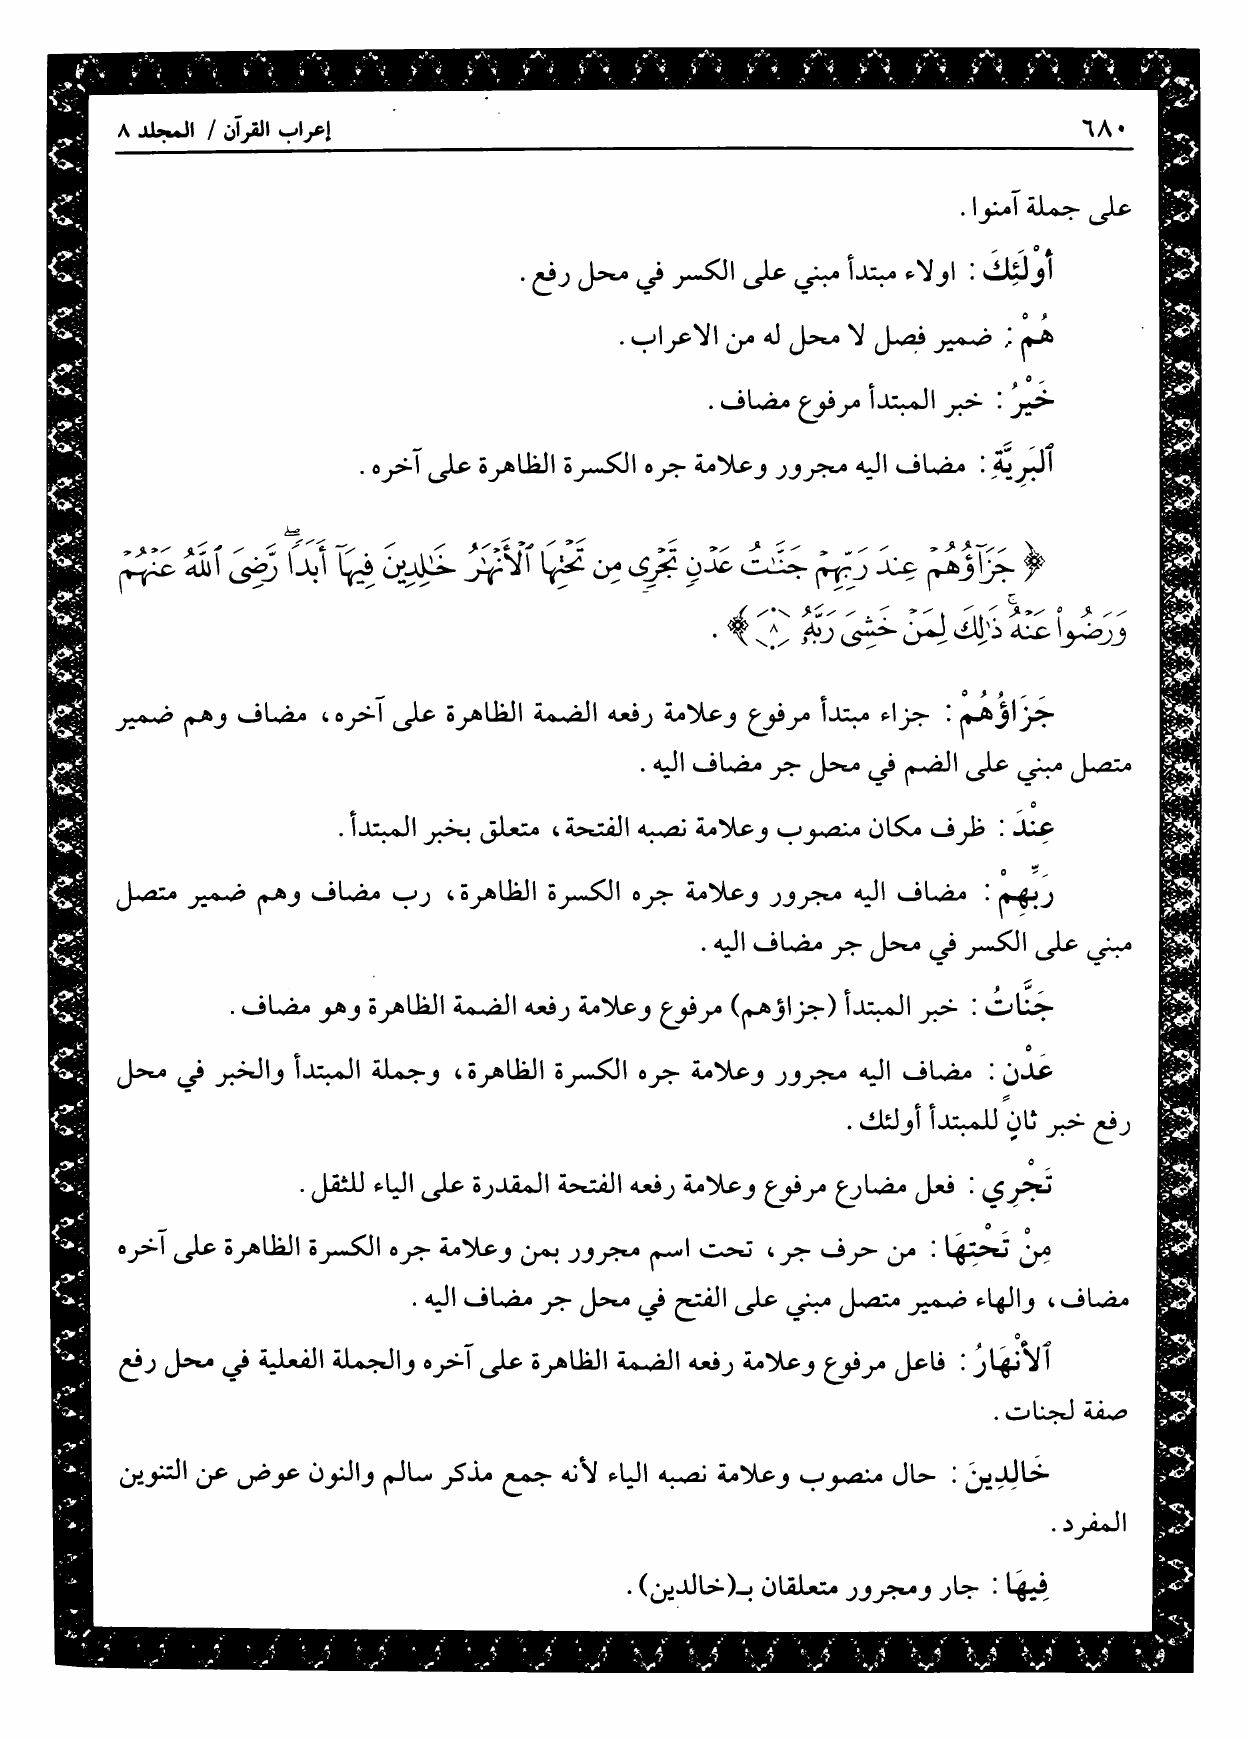 ٦٨٠
إعراب القرآن / المجلد ٨
على جملة آمنوا .
أُوْلَئِكَ : اولاء مبتدأ مبني على الكسر في محل رفع .
هُمْ : ضمير فصل لا محل له من الاعراب .
خَيْرُ : خبر المبتدأ مرفوع مضاف .
ٱلْبَرِيَّةِ : مضاف اليه مجرور وعلامة جره الكسرة الظاهرة على آخره .
﴿ جَزَآؤُهُمْ عِندَ رَبِّهِمْ جَنَّـٰتُ عَدْنٍ تَجْرِى مِن تَحْتِهَا ٱلْأَنْهَـٰرُ خَـٰلِدِينَ فِيهَآ أَبَدًا ۖ رَّضِىَ ٱللَّهُ عَنْهُمْ
وَرَضُوا۟ عَنْهُ ۚ ذَٰلِكَ لِمَنْ خَشِىَ رَبَّهُۥ ٨ ﴾ .
جَزَاؤُهُمْ : جزاء مبتدأ مرفوع وعلامة رفعه الضمة الظاهرة على آخره، مضاف وهم ضمير
متصل مبني على الضم في محل جر مضاف اليه .
عِنْدَ : ظرف مكان منصوب وعلامة نصبه الفتحة، متعلق بخبر المبتدأ .
رَبِّهِمْ : مضاف اليه مجرور وعلامة جره الكسرة الظاهرة، رب مضاف وهم ضمير متصل
مبني على الكسر في محل جر مضاف اليه .
جَنَّاتُ : خبر المبتدأ (جزاؤهم) مرفوع وعلامة رفعه الضمة الظاهرة وهو مضاف .
عَدْنٍ : مضاف اليه مجرور وعلامة جره الكسرة الظاهرة، وجملة المبتدأ والخبر في محل
رفع خبر ثانٍ للمبتدأ أولئك .
تَجْرِي : فعل مضارع مرفوع وعلامة رفعه الفتحة المقدرة على الياء للثقل .
مِنْ تَحْتِهَا : من حرف جر، تحت اسم مجرور بمن وعلامة جره الكسرة الظاهرة على آخره
مضاف، والهاء ضمير متصل مبني على الفتح في محل جر مضاف اليه .
ٱلأَنْهَارُ : فاعل مرفوع وعلامة رفعه الضمة الظاهرة على آخره والجملة الفعلية في محل رفع
صفة لجنات .
خَالِدِينَ : حال منصوب وعلامة نصبه الياء لأنه جمع مذكر سالم والنون عوض عن التنوين
المفرد .
فِيهَا : جار ومجرور متعلقان بـ(خالدين) .